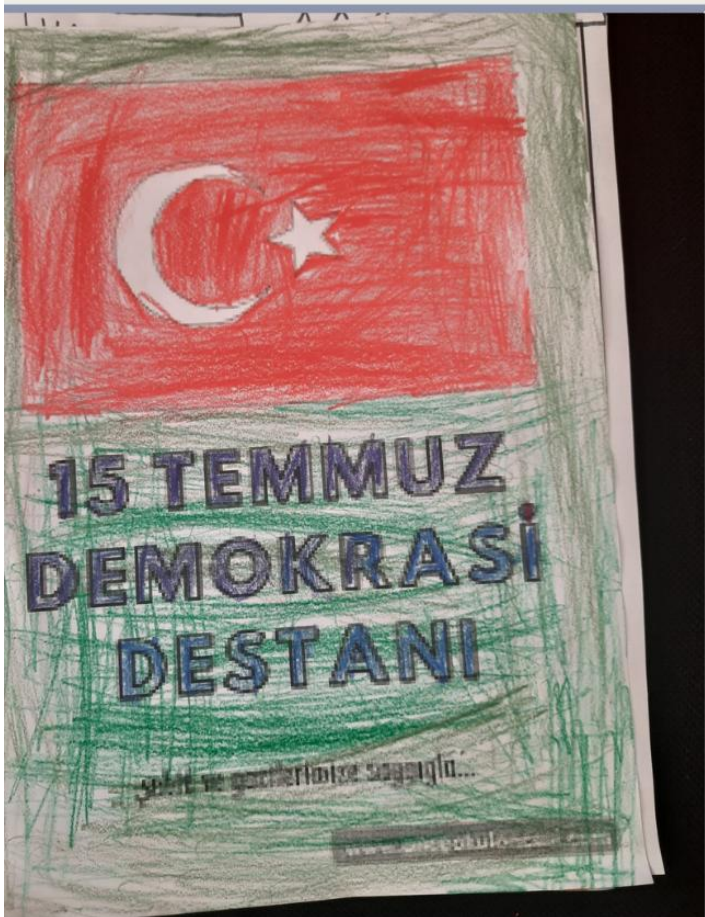 15 TEMMUZ
DEMOKRASİ
DESTANI
ve gazilerimize saygıyla...